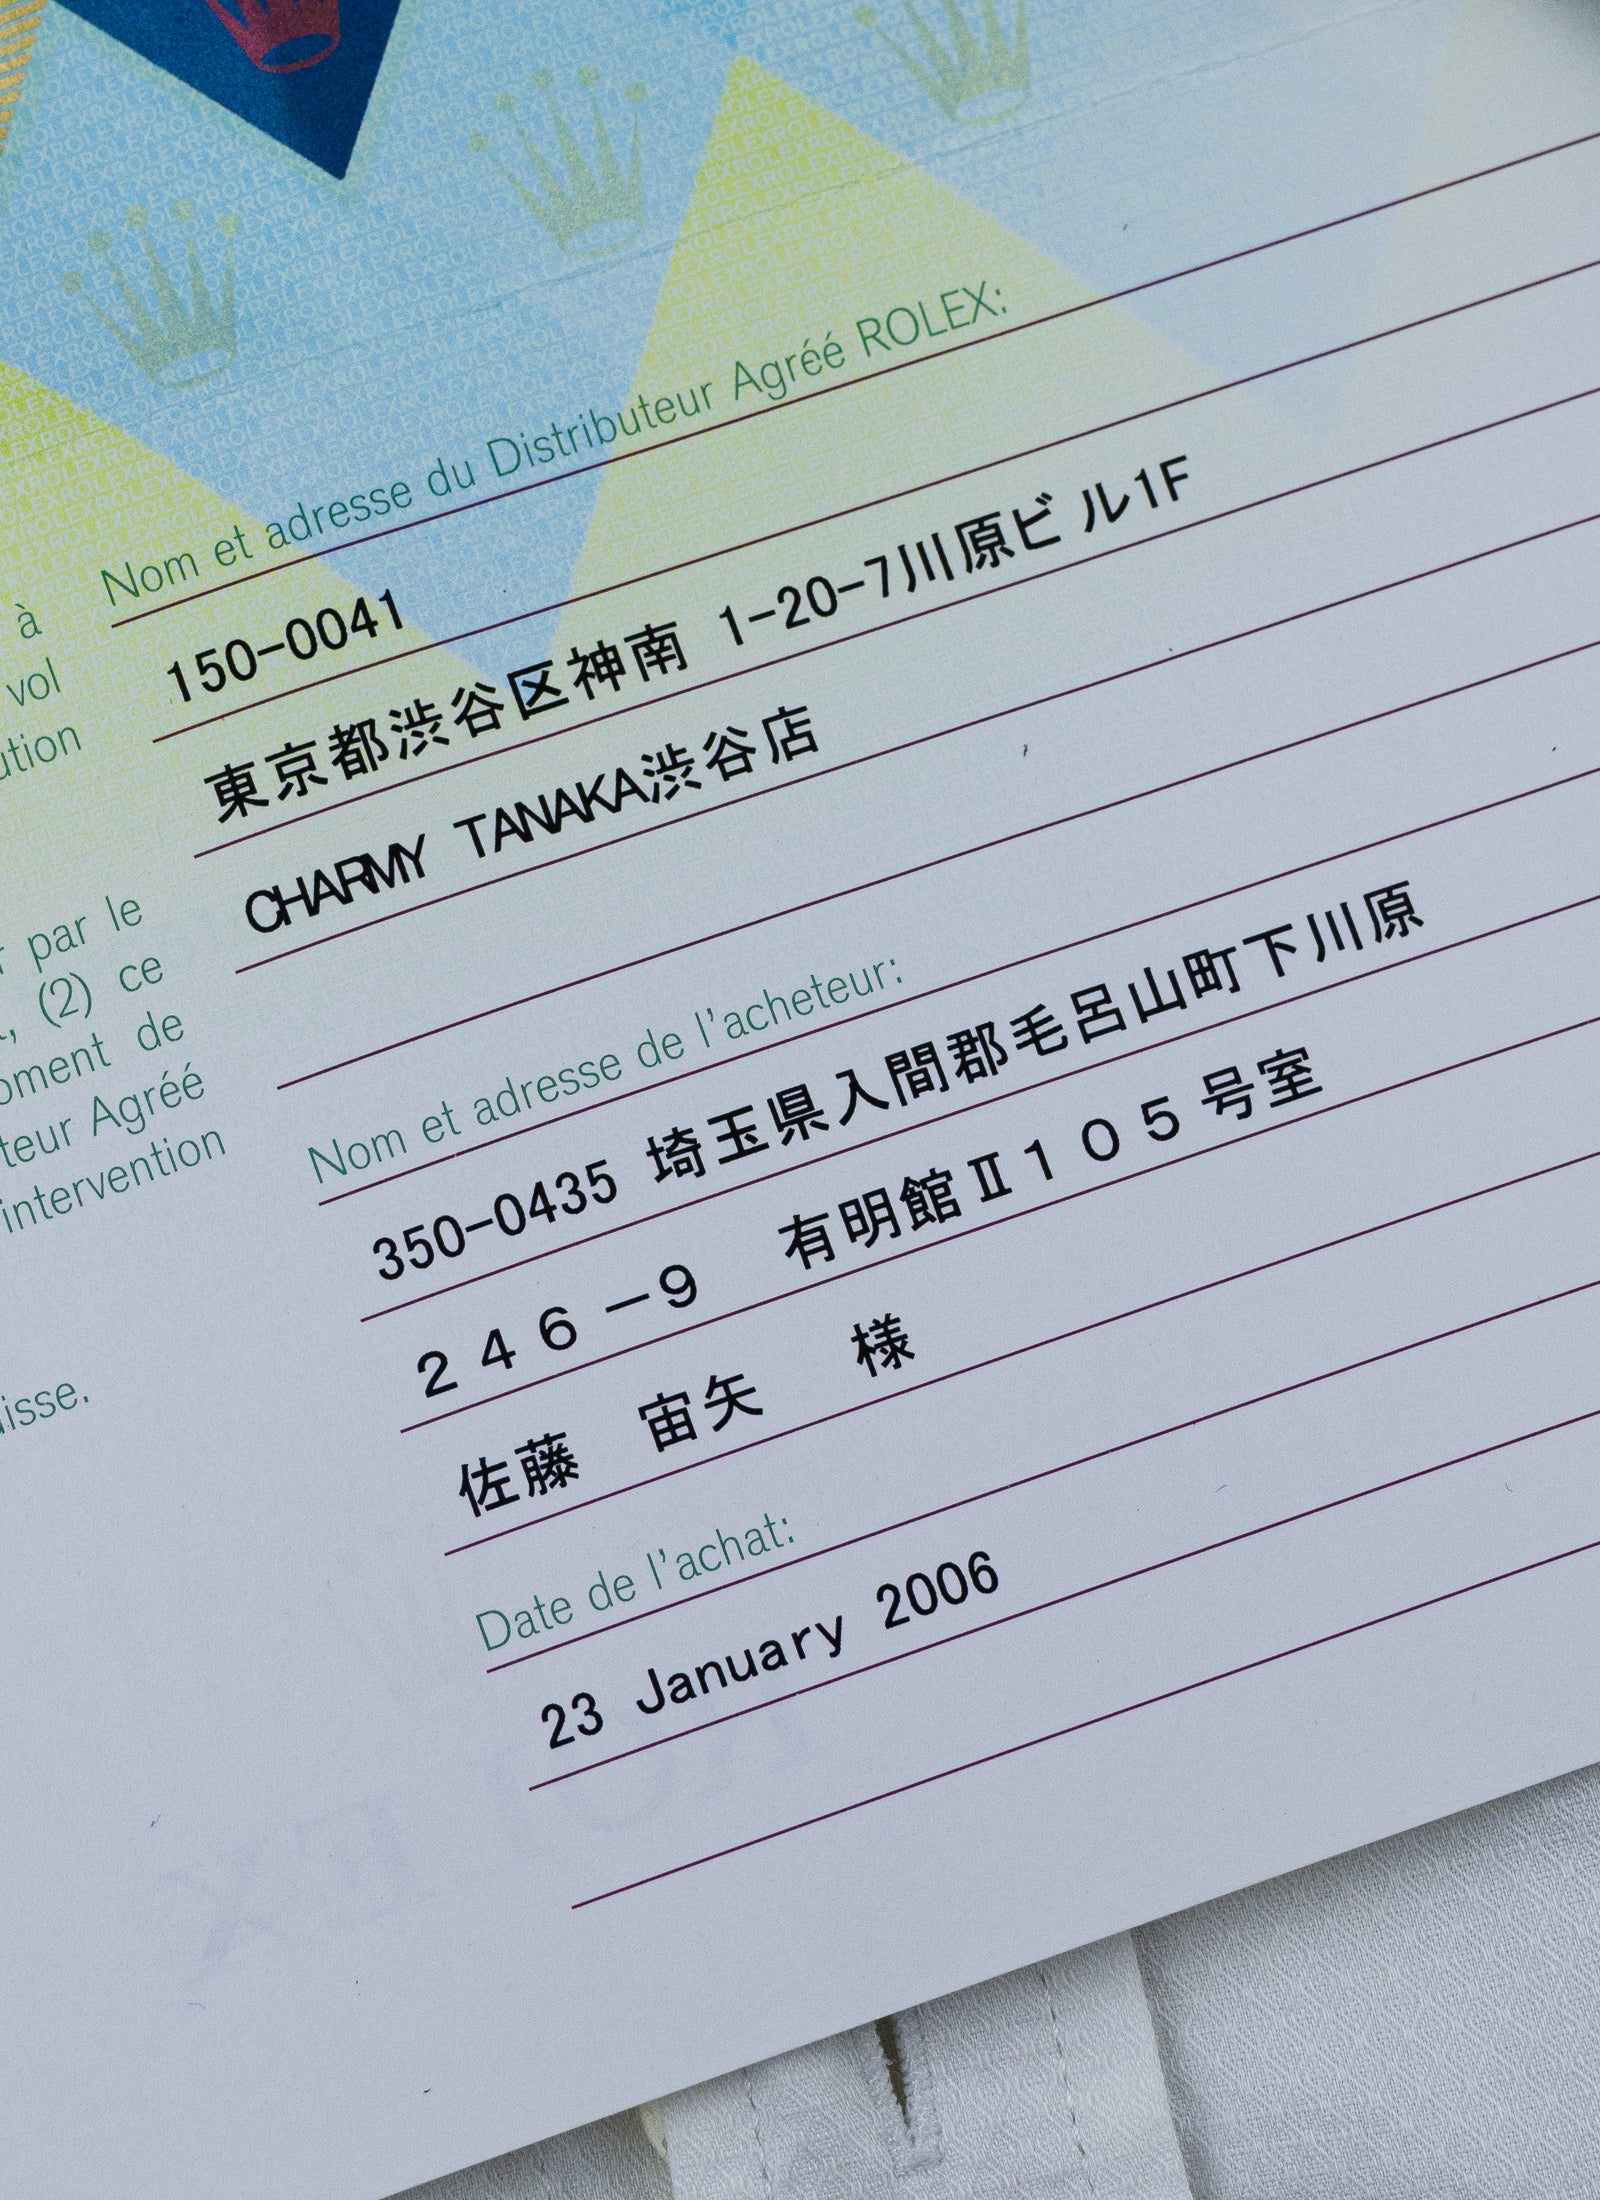 Nom et adresse du Distributeur Agréé ROLEX:
150-0041
東京都渋谷区神南 1-20-7川原ビル1F
CHARMY TANAKA渋谷店
Nom et adresse de l'acheteur:
350-0435 埼玉県入間郡毛呂山町下川原
２４６－９　有明館Ⅱ１０５号室
佐藤　宙矢　様
Date de l'achat:
23 January 2006
à
vol
par le
(2) ce
de
Agréé
intervention